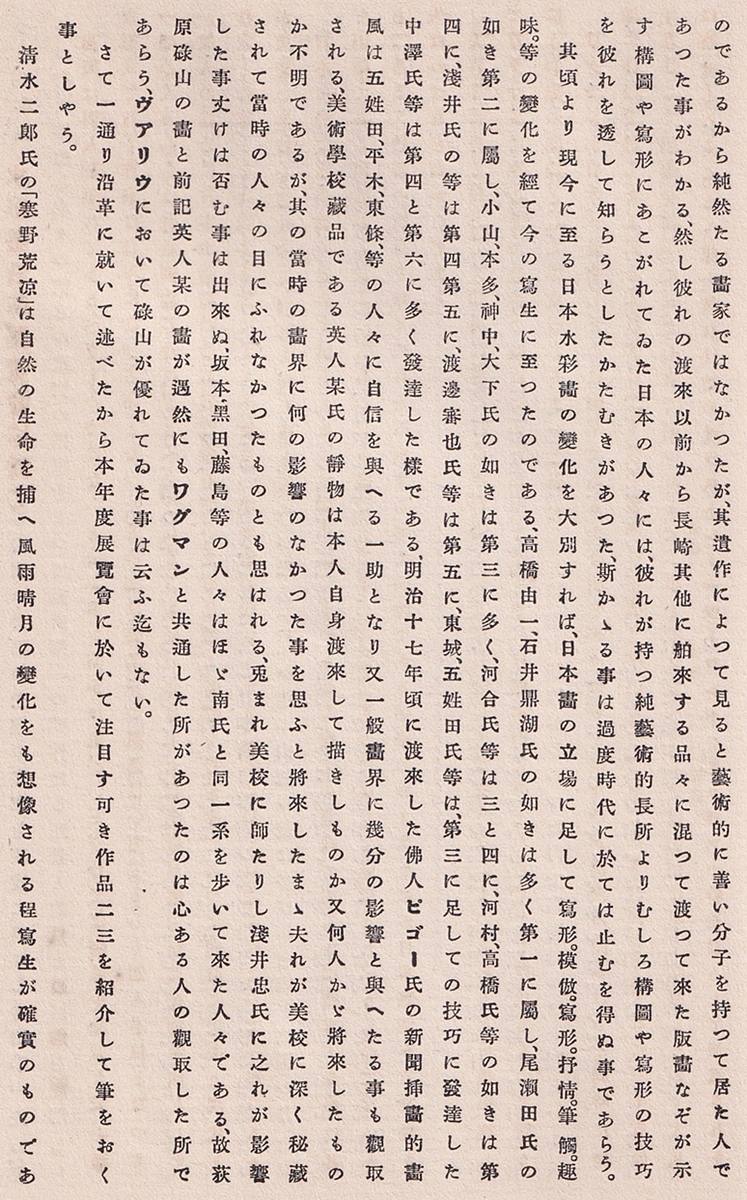 のであるから純然たる畫家ではなかつたが、其遺作によつて見ると藝術的に善い分子を持つて居た人で
あつた事がわかる、然し彼れの渡來以前から長崎其他に舶來する品々に混つて渡つて來た版畫なぞが示
す構圖や寫形にあこがれてゐた日本の人々には、彼れが持つ純藝術的長所よりむしろ構圖や寫形の技巧
を彼れを透して知らうとしたかたむきがあつた、斯かゝる事は過度時代に於ては止むを得ぬ事であらう。
其頃より現今に至る日本水彩畫の變化を大別すれば、日本畫の立場に足して寫形。模倣。寫形。抒情。筆觸。趣
味。等の變化を經て今の寫生に至つたのである、高橋由一、石井鼎湖氏の如きは多く第一に屬し、尾瀬田氏の
如き第二に屬し、小山、本多、神中、大下氏の如きは第三に多く、河合氏等は三と四に、河村、高橋氏等の如きは第
四に、淺井氏の等は第四第五に、渡邊審也氏等は第五に、東城、五姓田氏等は、第三に足しての技巧に發達した
中澤氏等は第四と第六に多く發達した樣である、明治十七年頃に渡來した佛人ビゴー氏の新聞挿畫的畫
風は五姓田、平木、東條、等の人々に自信を與へる一助となり又一般畫界に幾分の影響と與へたる事も觀取
される、美術學校藏品である英人某氏の靜物は本人自身渡來して描きしものか又何人かゞ將來したもの
か不明であるが、其の當時の畫界に何の影響のなかつた事を思ふと將來したまゝ夫れが美校に深く秘藏
されて當時の人々の目にふれなかつたものとも思はれる、兎まれ美校に師たりし淺井忠氏に之れが影響
した事丈けは否む事は出來ぬ、坂本、黑田、藤島等の人々はほゞ南氏と同一系を歩いて來た人々である、故荻
原碌山の畫と前記英人某の畫が遇然にもワグマンと共通した所があつたのは心ある人の觀取した所で
あらう、ヴアリウにおいて碌山が優れてゐた事は云ふ迄もない。
さて一通り沿革に就いて述べたから本年度展覽會に於いて注目す可き作品二三を紹介して筆をおく
事としやう。
清水二郎氏の「寒野荒凉」は自然の生命を捕へ風雨晴月の變化をも想像される程寫生が確實のものであ